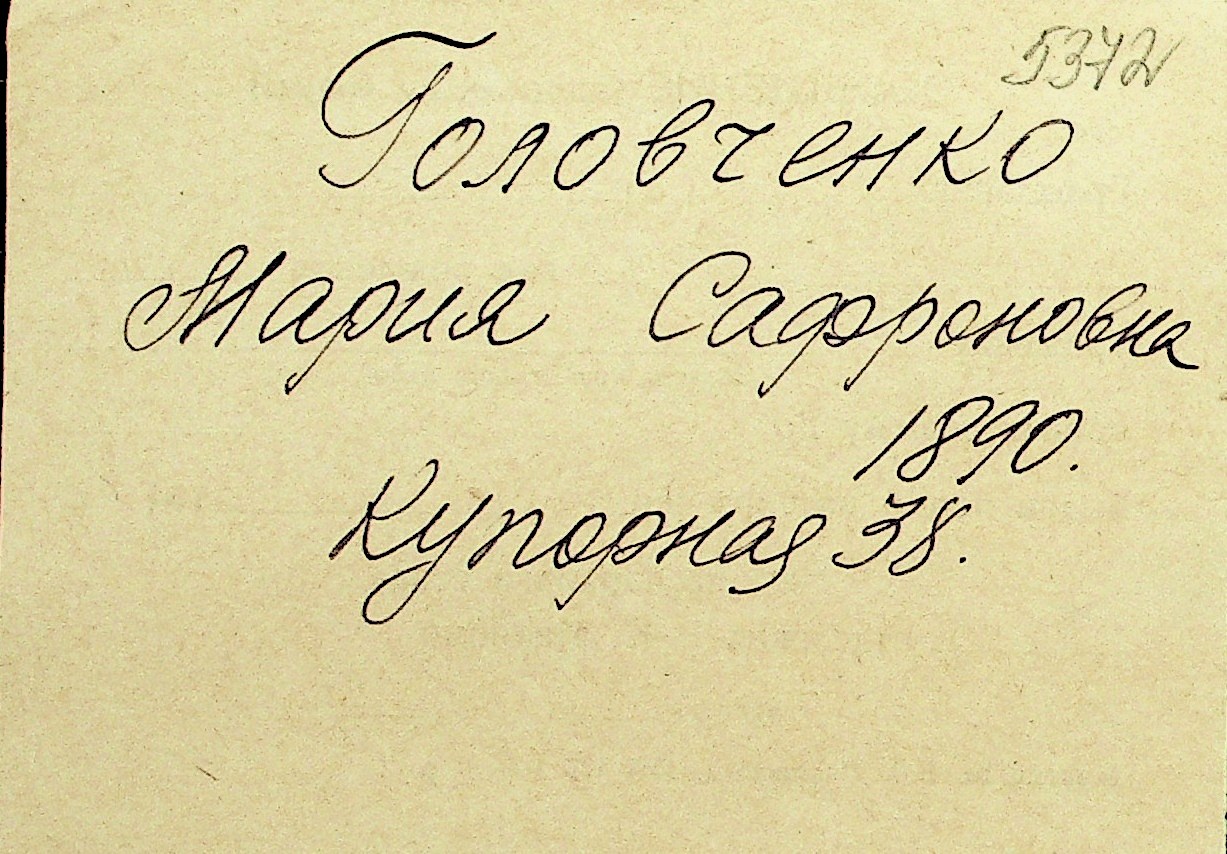 5372
Головченко
Мария Сафроновна
1890.
Купорная 38.